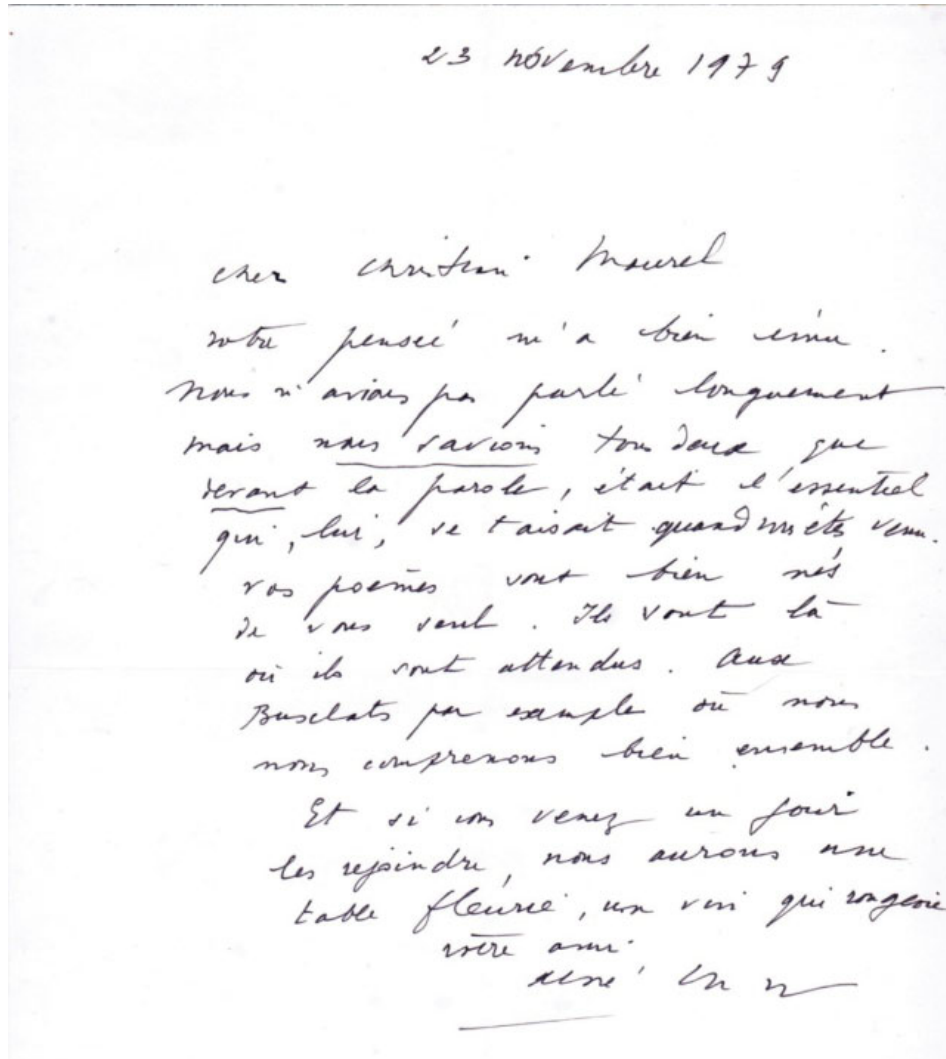 23 novembre 1979
cher Christian Maurel
votre pensée m'a bien ému.
Nous n'avions pas parlé longuement
mais nous savions tous deux que
devant la parole, était l'essentiel
qui, lui, se taisait quand vous êtes venu.
vos poèmes sont bien nés
de vous seul. Ils vont là
où ils sont attendus. Aux
Busclats par exemple où nous
nous comprenons bien ensemble.
Et si vous venez un jour
les rejoindre, nous aurons une
table fleurie, un vin qui rougeoie
votre ami
René Char